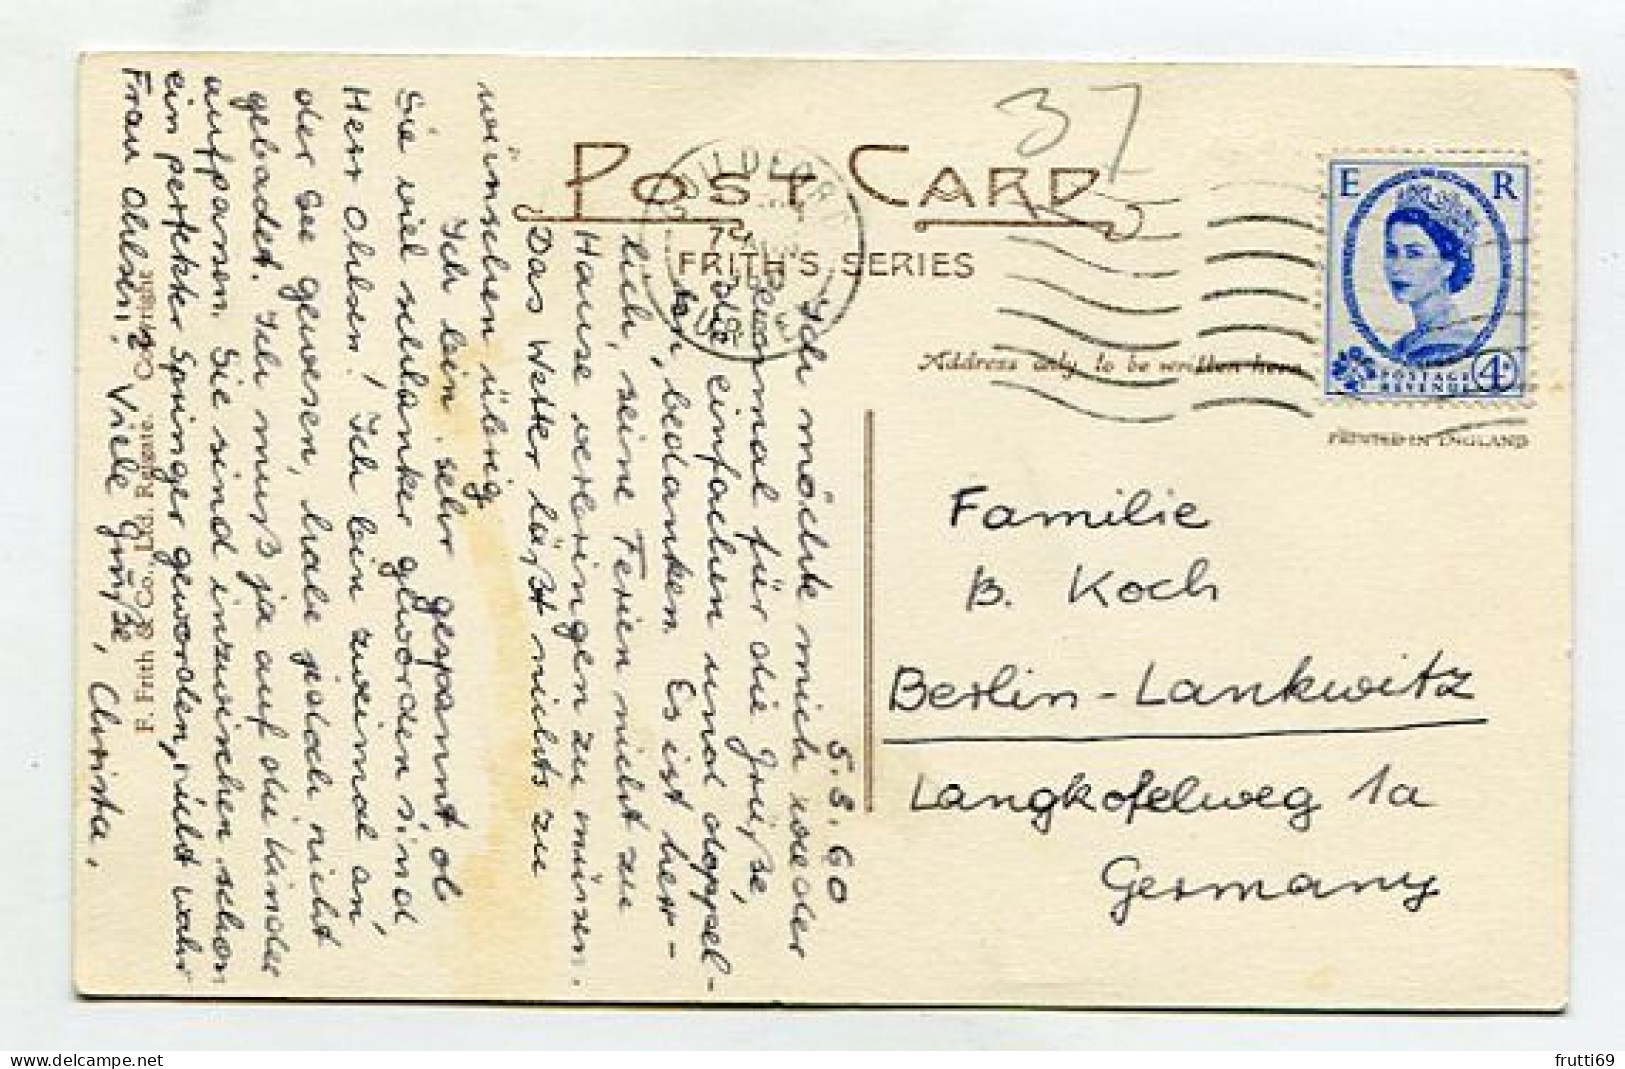 37
POST CARD
FRITH'S SERIES
Address only to be written here
E R
POSTAGE
REVENUE
4D
PRINTED IN ENGLAND
Familie
B. Koch
Berlin-Lankwitz
Langkofelweg 1a
Germany
5.8.60
Ich möchte mich wieder
einmal für die Grüße,
die einfachen und doppel-
ten, bedanken. Es ist herr-
lich, seine Ferien nicht zu
Hause verbringen zu müssen.
Das Wetter läßt nichts zu
wünschen übrig
Ich bin sehr gespannt ob
Sie viel schlanker geworden sind,
Herr Ohlsen! Ich bin zweimal an
der See gewesen, habe jedoch nicht
gebadet. Ich muß ja auf die Kinder
aufpassen. Sie sind inzwischen schon
ein perfekter Springer geworden, nicht wahr
Frau Ohlsen? Viele Grüße, Christa.
F. Frith & Co., Ltd. Reigate. Copyright
frutti69